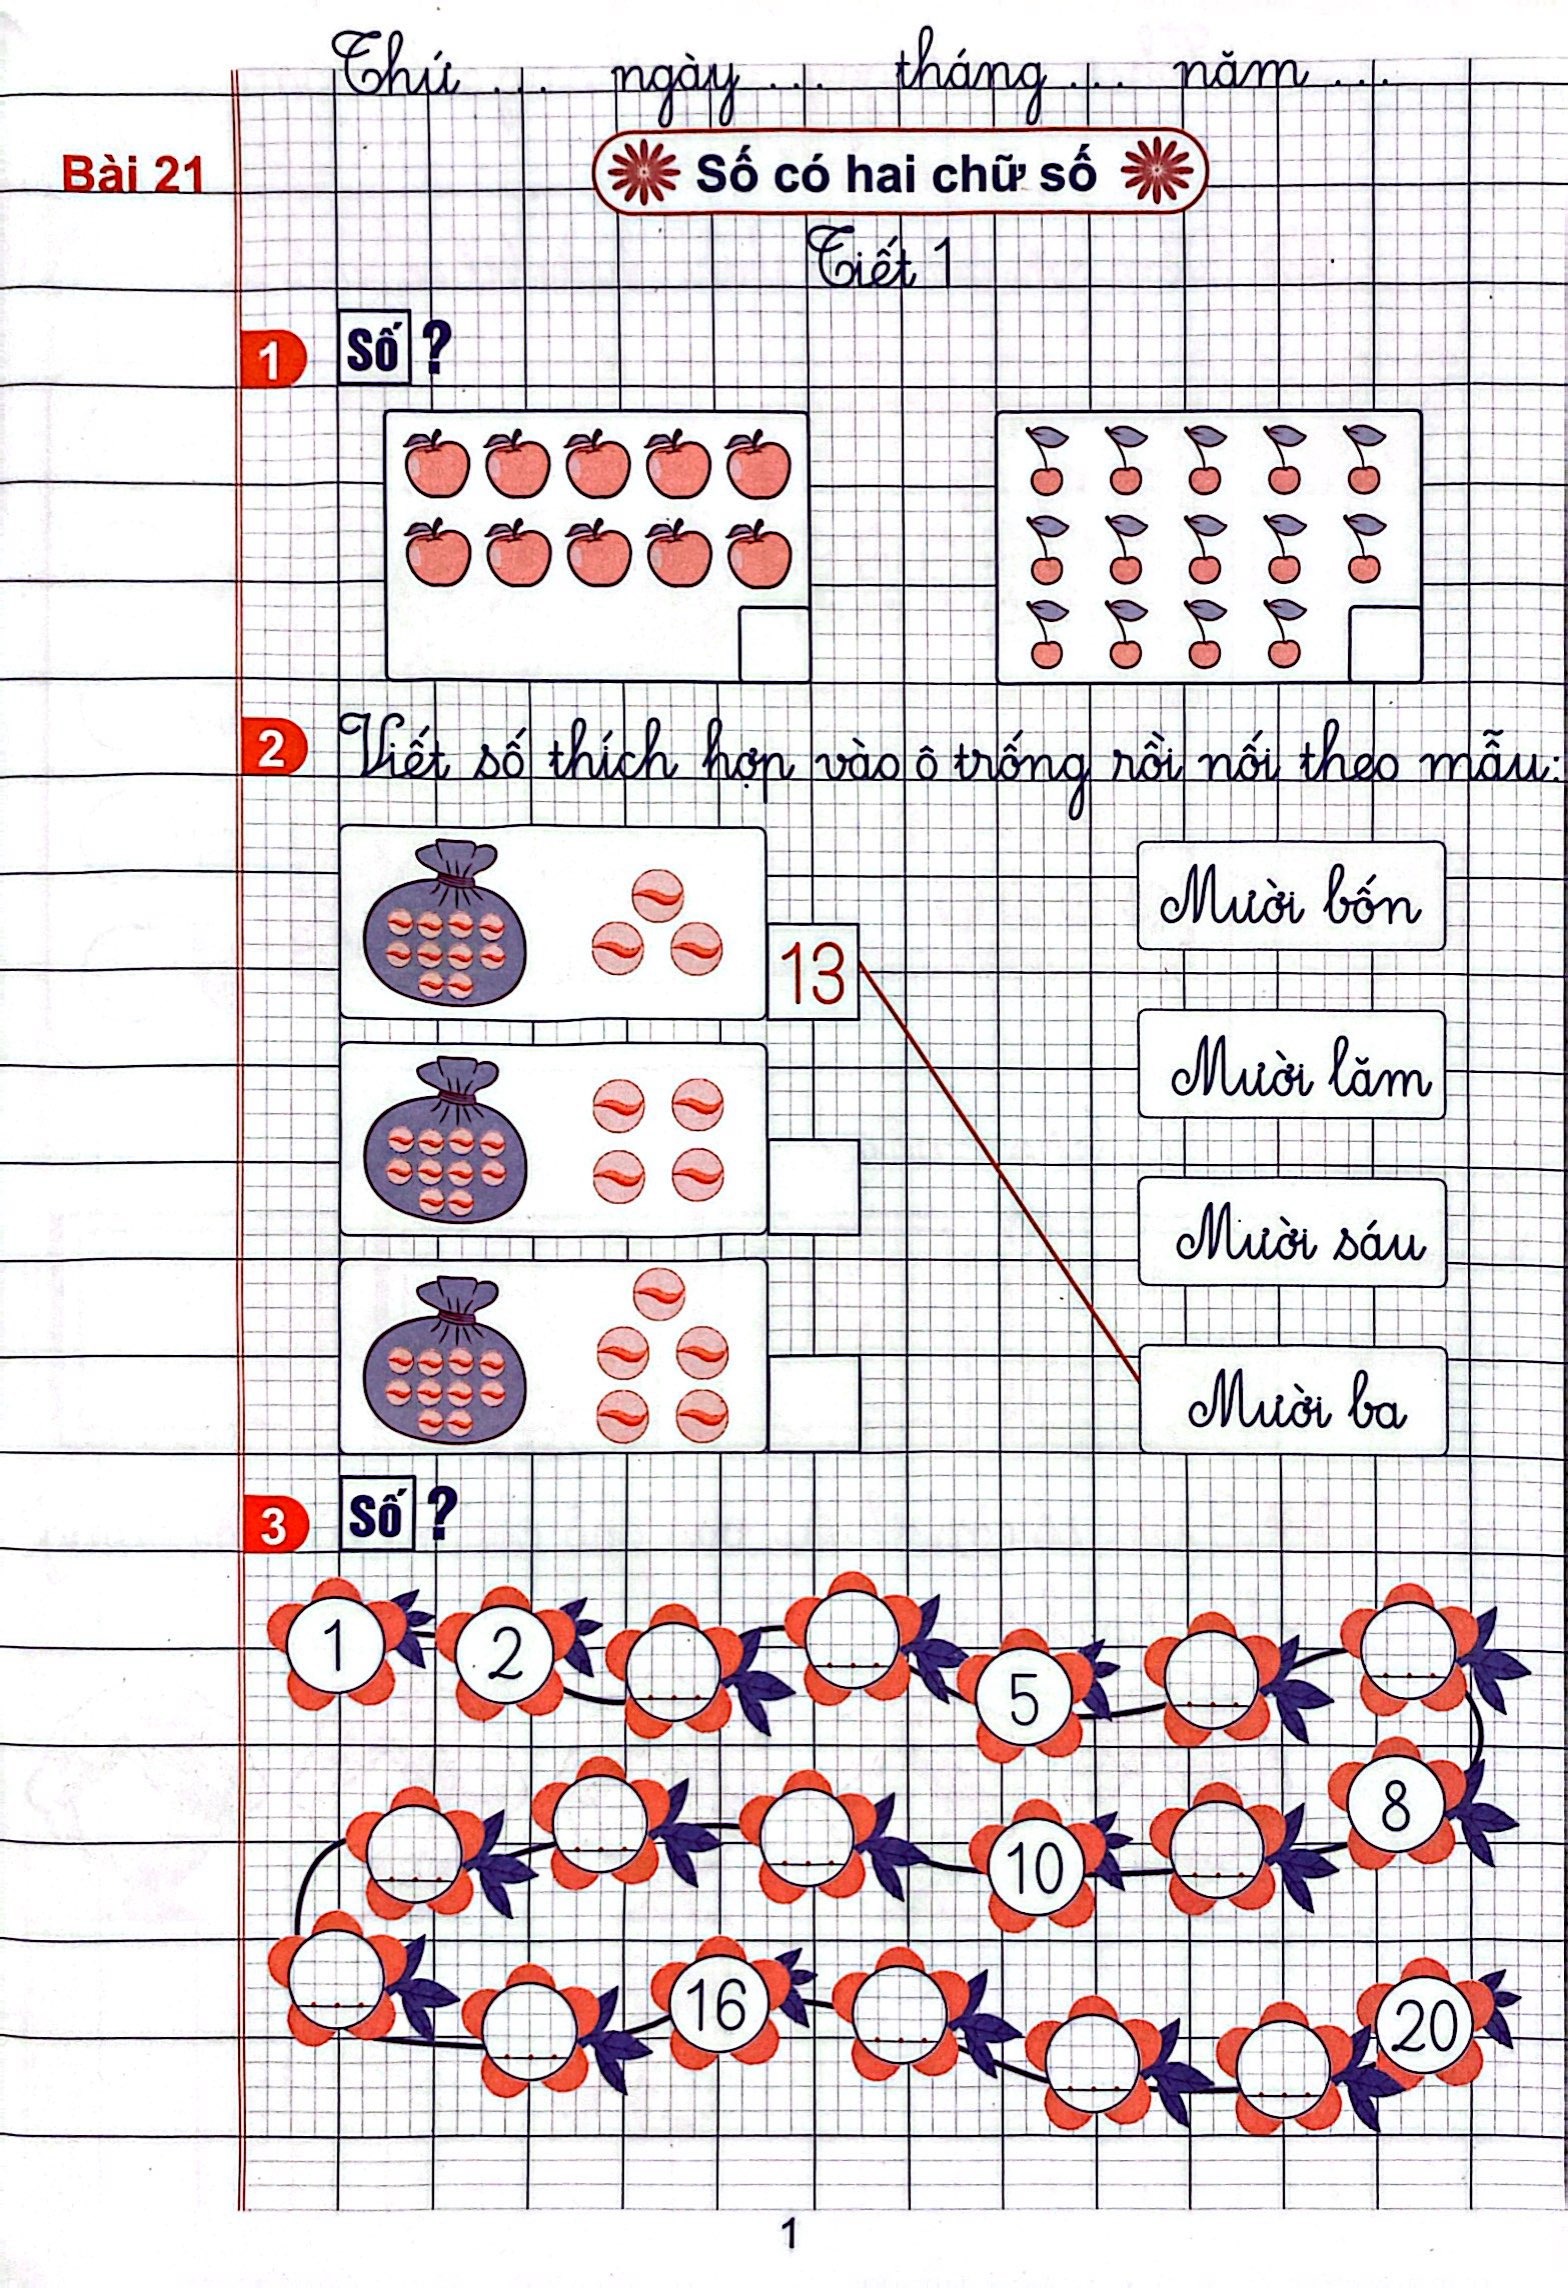 Thứ ... ngày ... tháng ... năm ...
Bài 21
Số có hai chữ số
Tiết 1
1 Số ?
2 Viết số thích hợp vào ô trống rồi nối theo mẫu:
Mười bốn
13
Mười lăm
Mười sáu
Mười ba
3 Số ?
1 2 ... ... 5 ... ...
... ... ... 10 ... 8
... ... 16 ... ... ... 20
1